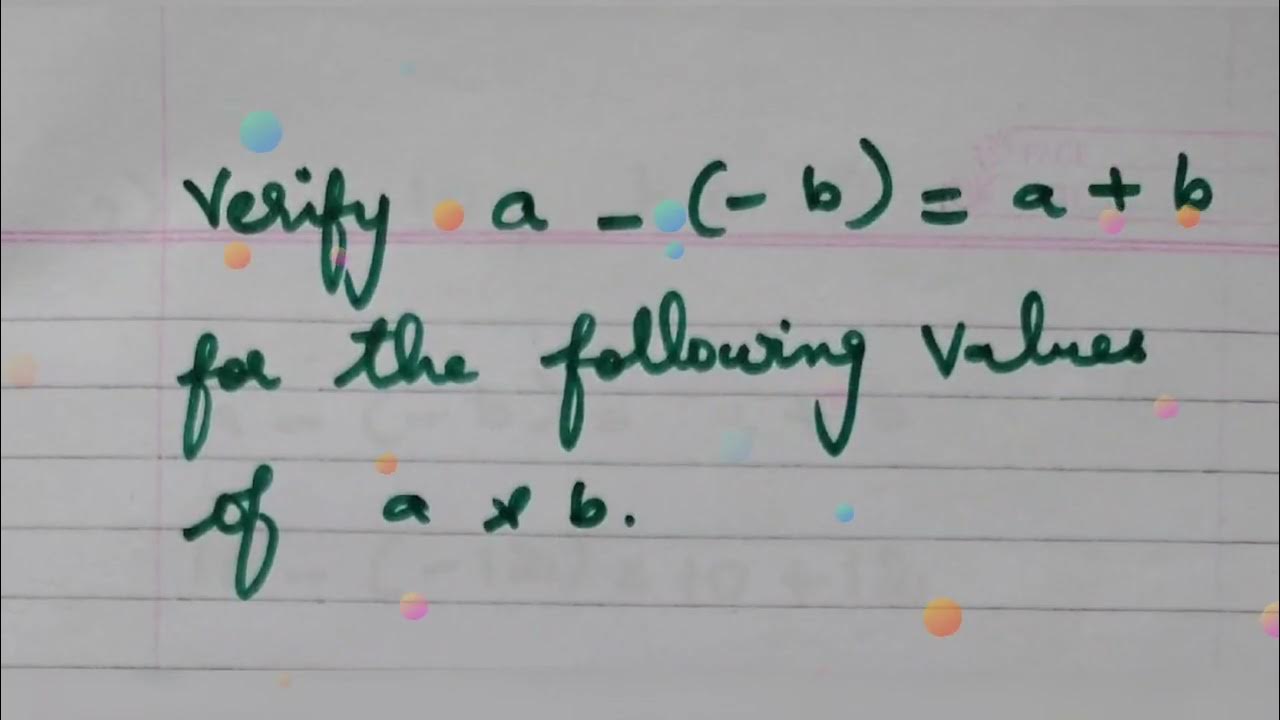 Verify a - (- b) = a + b
for the following values
of a & b.